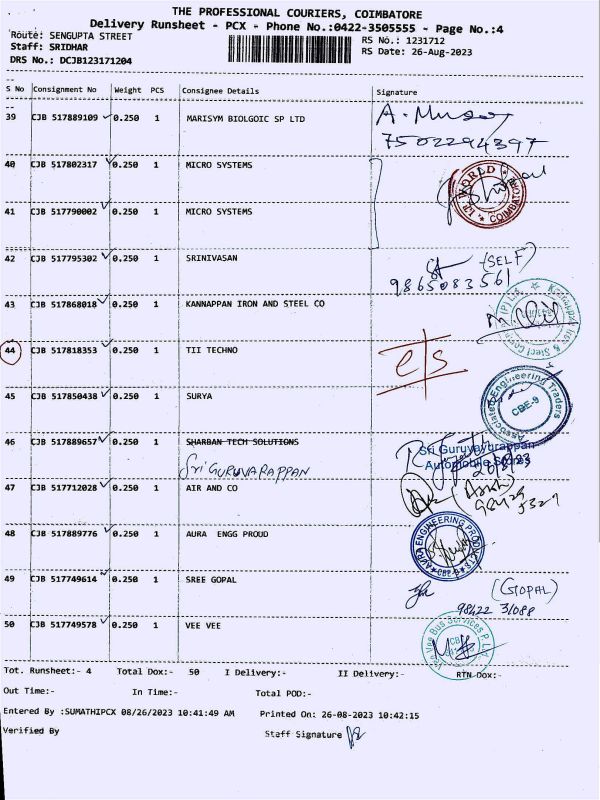 THE PROFESSIONAL COURIERS, COIMBATORE
Delivery Runsheet - PCX - Phone No.:0422-3505555 - Page No.:4
Route: SENGUPTA STREET
RS No.: 1231712
Staff: SRIDHAR
RS Date: 26-Aug-2023
DRS No.: DCJB123171204
S No Consignment No Weight PCS Consignee Details Signature
39 CJB 517889109 0.250 1 MARISYM BIOLGOIC SP LTD
7502294397
40 CJB 517802317 0.250 1 MICRO SYSTEMS
WORLD COIMBATORE
41 CJB 517790002 0.250 1 MICRO SYSTEMS
42 CJB 517795302 0.250 1 SRINIVASAN (SELF)
9865083561
43 CJB 517868018 0.250 1 KANNAPPAN IRON AND STEEL CO
44 CJB 517818353 0.250 1 TII TECHNO
45 CJB 517850438 0.250 1 SURYA
Associated Engineering Traders CBE-9
46 CJB 517889657 0.250 1 SHARBAN TECH SOLUTIONS
Sri GURUVARAPPAN
Sri Guruvayurappan
Automobile
47 CJB 517712028 0.250 1 AIR AND CO
48 CJB 517889776 0.250 1 AURA ENGG PROUD
AURA ENGINEERING
49 CJB 517749614 0.250 1 SREE GOPAL (GOPAL)
98422 31088
50 CJB 517749578 0.250 1 VEE VEE
Vee Vee Bus Services P.Ltd
Tot. Runsheet:- 4 Total Dox:- 50 I Delivery:- II Delivery:- RTN Dox:-
Out Time:- In Time:- Total POD:-
Entered By :SUMATHIPCX 08/26/2023 10:41:49 AM Printed On: 26-08-2023 10:42:15
Verified By Staff Signature